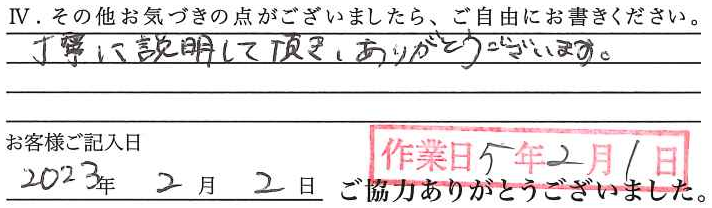 Ⅳ. その他お気づきの点がございましたら、ご自由にお書きください。
丁寧に説明して頂き、ありがとうございます。
お客様ご記入日
作業日5年2月1日
2023年 2月 2日 ご協力ありがとうございました。